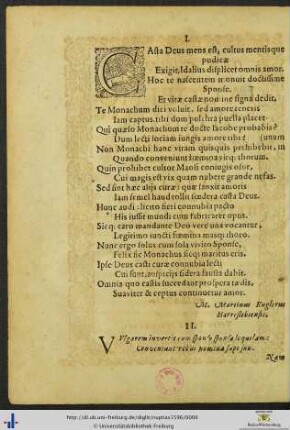 I.
CAsta Deus mens est, cultus mentisque
pudicæ
Exigit, Idalius displicet omnis amor.
Hoc te nascentem monuit doctissime
Sponse,
Et vitæ castæ non ine signa dedit.
Te Monachum dici voluit, sed amore teneris
Iam captus, tibi dum pulchra puella placet
Qui quæso Monachum te docte Iacobe probabis?
Dum lecti sociam jungis amore tibi?
Non Monachi hanc vitam quisquis prohibebit, in unum
Quando conveniunt fœmina virque thorum.
Quin prohibet cultor Mausi conjugis esse,
Cui magis est vix quam nubere grande nefas.
Sed sint hæc alijs curæ: quæ sanxit amoris
Iam semel haud tollit fœdera casta Deus.
Hunc audi: licito fieri connubia pacto
His jussit mundi cum fabricaret opus.
Sicque caro mandante Deo verè una vocantur,
Legitimo juncti fœmina masque thoro.
Nunc ergo solus cum sola vivito Sponse,
Felix sic Monachus sicque maritus eris.
Ipse Deus casti curæ connubia lecti
Cui sunt, auspicijs sidera fausta dabit.
Omnia quo castis succedant prospera tædis,
Suaviter & cæptus continuetur amor.
M. Martinus Englerus
Harreslebiensis.
II.
VUlgarem invertis cum sponso sponsa
Conveniunt rebus nomina sæpe suis.
Nam
http://dl.ub.uni-freiburg.de/diglit/nuptias1596/0006
© Universitätsbibliothek Freiburg